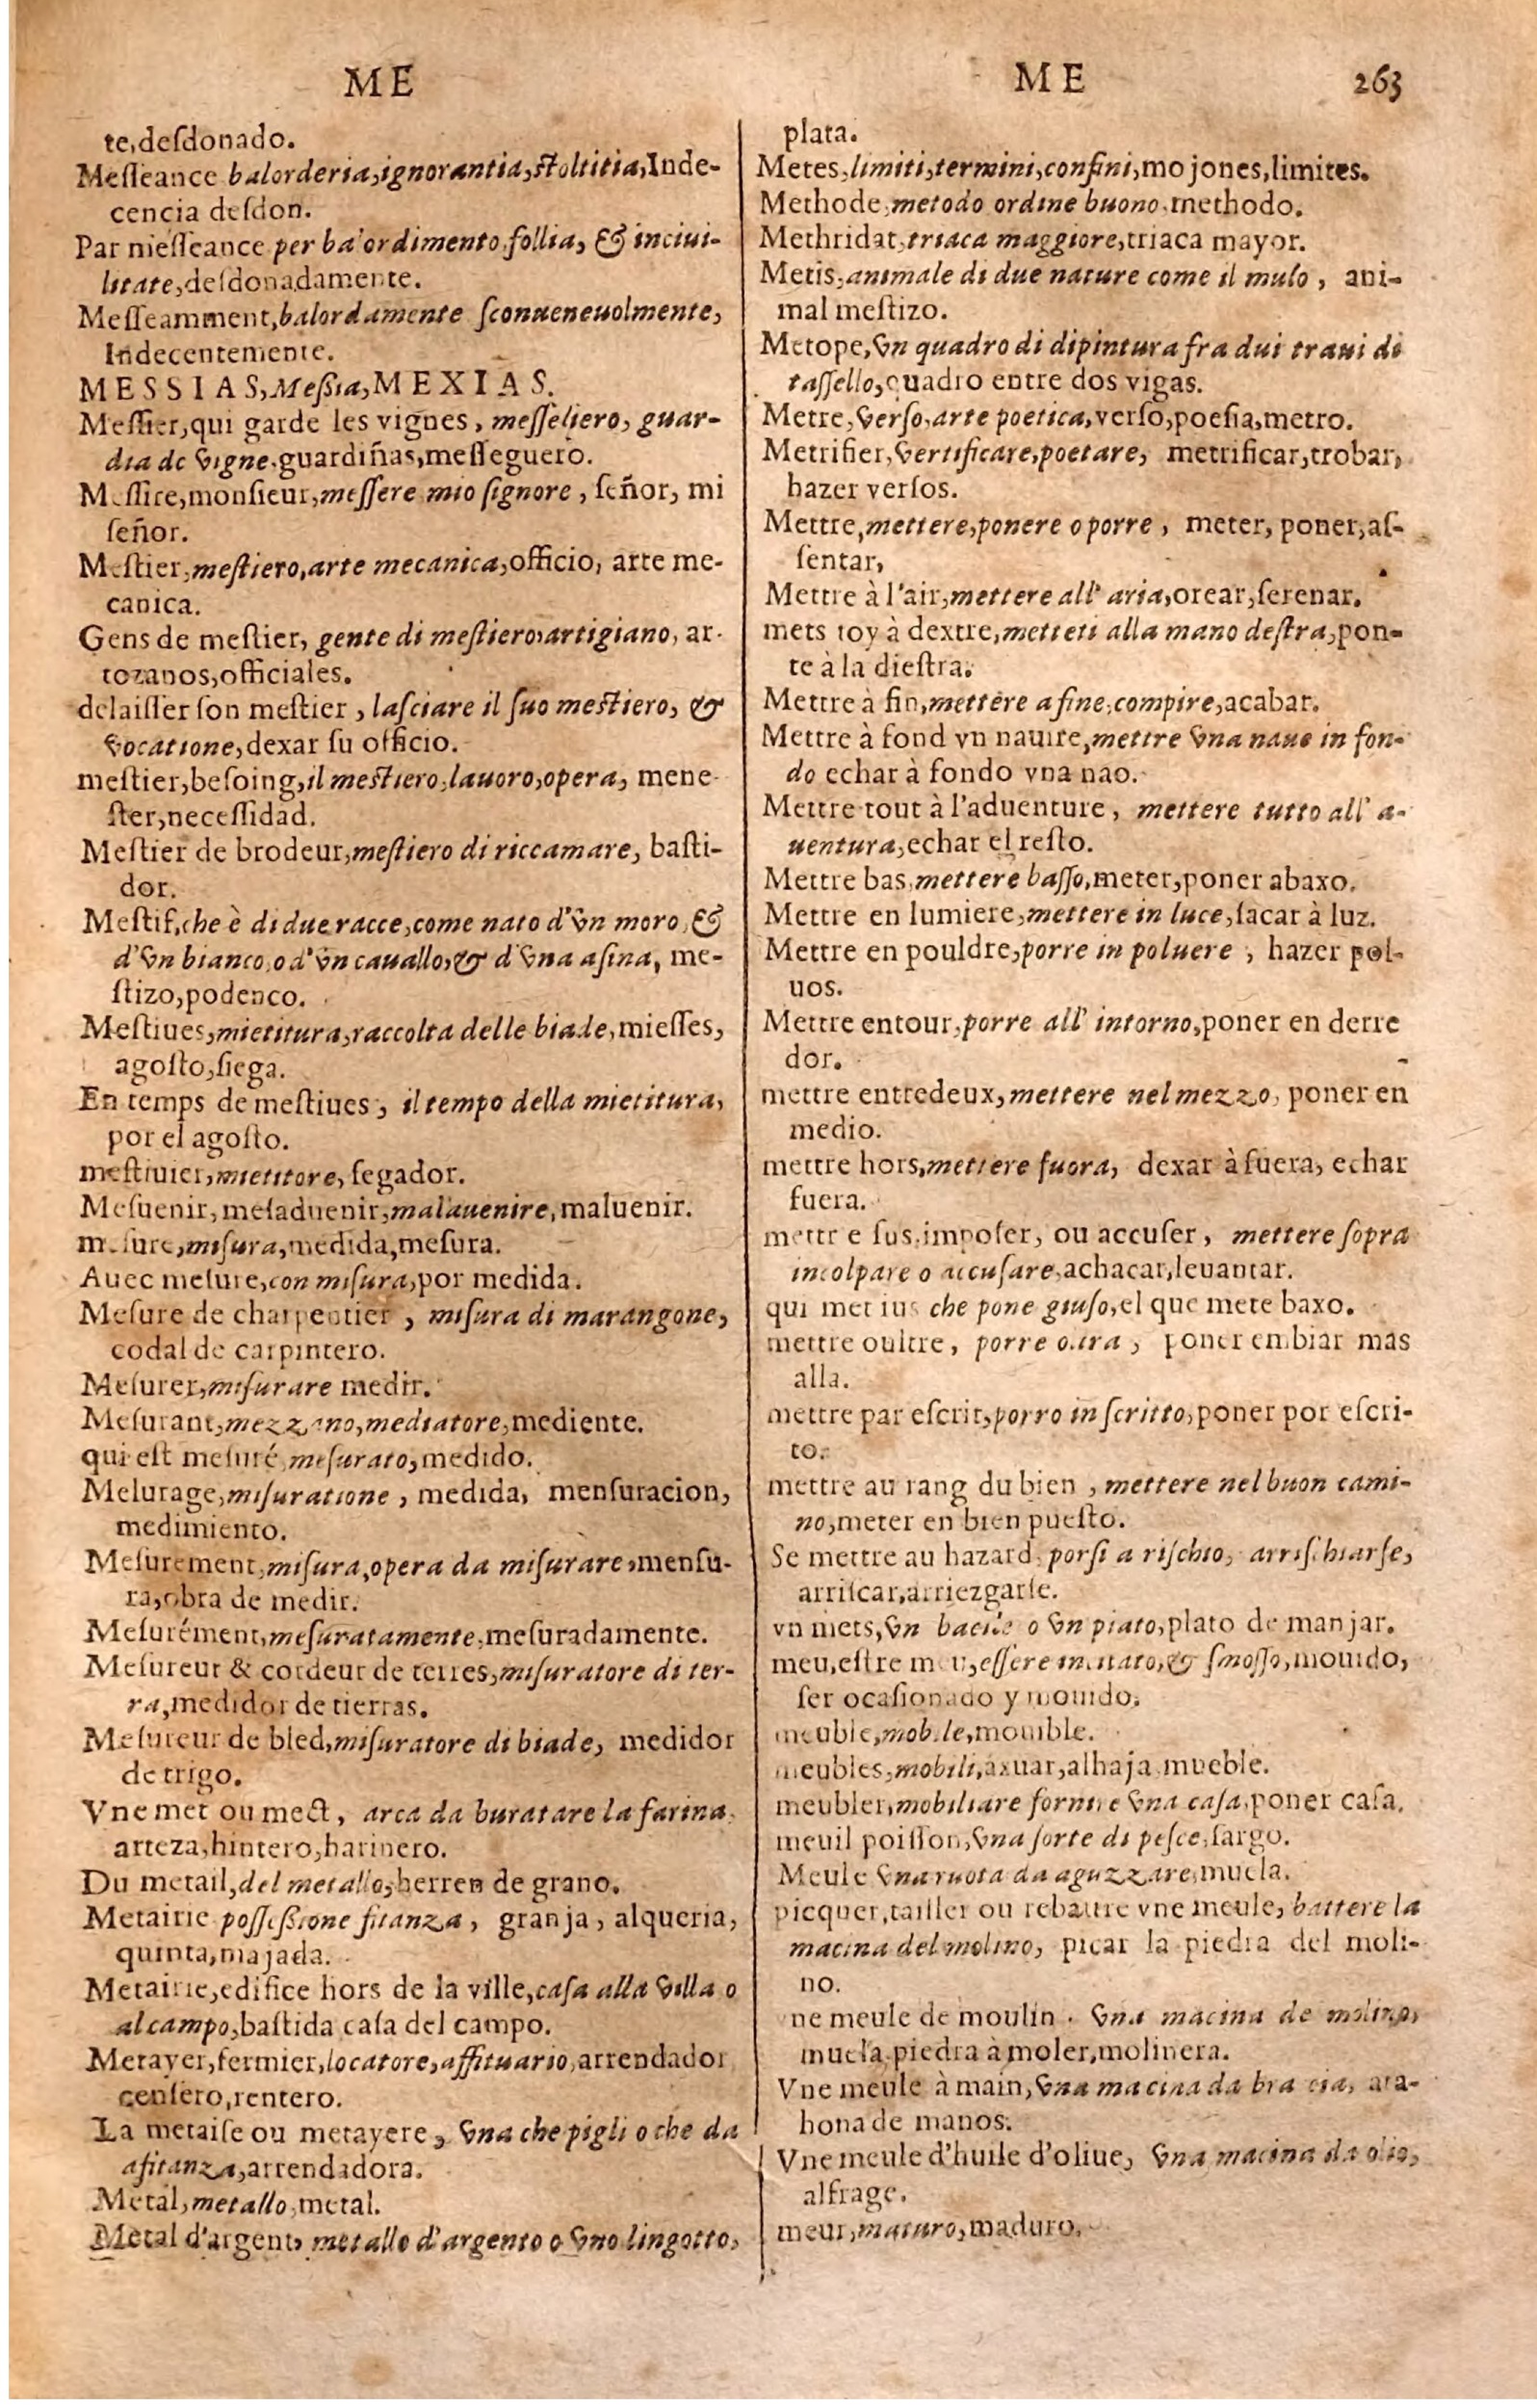 ME
te,desdonado.
Messeance balorderia,ignorantia,stoltitia,Inde-
cencia desdon.
Par niesseance per ba'ordimento,follia, & inciui-
litate,desdonadamente.
Messeamment,balordamente sconueneuolmente,
Indecentemente.
MESSIAS,Messia,MEXIAS.
Messier,qui garde les vignes, messeliero, guar-
dia de vigne.guardiñas,messeguero.
Messire,monsieur,messere mio signore, señor, mi
señor.
Mestier,mestiero,arte mecanica,officio, arte me-
canica.
Gens de mestier, gente di mestiero,artigiano, ar-
tozanos,officiales.
delaisser son mestier, lasciare il suo mestiero, &
vocatione,dexar su officio.
mestier,besoing,il mestiero,lauoro,opera, mene-
ster,necessidad.
Mestier de brodeur,mestiero di riccamare, basti-
dor.
Mestif,che è di due racce,come nato d'vn moro, &
d'vn bianco,o d'vn cauallo,& d'vna asina, me-
stizo,podenco.
Mestiues,mietitura,raccolta delle biade,miesses,
agosto,siega.
En temps de mestiues, il tempo della mietitura,
por el agosto.
mestiuier,mietitore,segador.
Mesuenir,mesaduenir,mal'auenire,maluenir.
mesure,misura,medida,mesura.
Auec mesure,con misura,por medida.
Mesure de charpentier, misura di marangone,
codal de carpintero.
Mesurer,misurare medir.
Mesurant,mezzano,mediatore,mediente.
qui est mesuré,mesurato,medido.
Mesurage,misuratione, medida, mensuracion,
medimiento.
Mesurement,misura,opera da misurare,mensu-
ra,obra de medir.
Mesurément,mesuratamente,mesuradamente.
Mesureur & cordeur de terres,misuratore di ter-
ra,medidor de tierras.
Mesureur de bled,misuratore di biade, medidor
de trigo.
Vne met ou mect, arca da buratare la farina,
arteza,hintero,harinero.
Du metail,del metallo,herren de grano.
Metairie possessione fitanza, granja, alqueria,
quinta,majada.
Metairie,edifice hors de la ville,casa alla villa o
al campo,bastida casa del campo.
Metayer,fermier,locatore,affituario,arrendador
censero,rentero.
La metaise ou metayere, vna che pigli o che da
afitanza,arrendadora.
Metal,metallo,metal.
Metal d'argent, metallo d'argento o vno lingotto,
ME 263
plata.
Metes,limiti,termini,confini,mojones,limites.
Methode,metodo ordine buono,methodo.
Methridat,triaca maggiore,triaca mayor.
Metis,animale di due nature come il mulo, ani-
mal mestizo.
Metope,vn quadro di dipintura fra dui traui di
tassello,quadro entre dos vigas.
Metre,verso,arte poetica,verso,poesia,metro.
Metrifier,vertificare,poetare, metrificar,trobar,
hazer versos.
Mettre,mettere,ponere o porre, meter, poner,as-
sentar,
Mettre à l'air,mettere all' aria,orear,serenar.
mets toy à dextre,metteti alla mano destra,pon-
te à la diestra.
Mettre à fin,mettere a fine,compire,acabar.
Mettre à fond vn nauire,mettre vna naue in fon-
do echar à fondo vna nao.
Mettre tout à l'aduenture, mettere tutto all' a-
uentura,echar el resto.
Mettre bas,mettere basso,meter,poner abaxo.
Mettre en lumiere,mettere in luce,sacar à luz.
Mettre en pouldre,porre in poluere, hazer pol-
uos.
Mettre entour,porre all' intorno,poner en derre
dor.
mettre entredeux,mettere nel mezzo, poner en
medio.
mettre hors,mettere fuora, dexar à fuera, echar
fuera.
mettr e sus,imposer, ou accuser, mettere sopra
incolpare o accusare,achacar,leuantar.
qui met ius che pone giuso,el que mete baxo.
mettre oultre, porre oltra, poner embiar mas
alla.
mettre par escrit,porro in scritto,poner por escri-
to.
mettre au rang du bien, mettere nel buon cami-
no,meter en bien puesto.
Se mettre au hazard, porsi a rischio, arrischiarse,
arriscar,arriezgarse.
vn mets,vn bacile o vn piato,plato de manjar.
meu,estre meu,essere incitato,& smosso,mouido,
ser ocasionado y mouido.
meuble,mobile,mouible.
meubles,mobili,axuar,alhaja mueble.
meubler,mobiliare fornire vna casa,poner casa.
meuil poisson,vna sorte di pesce,sargo.
Meule vna ruota da aguzzare,muela.
picquer,tailler ou rebattre vne meule, battere la
macina del molino, picar la piedra del moli-
no.
ne meule de moulin. vna macina de molino,
muela piedra à moler,molinera.
Vne meule à main,vna macina da bracia, ata-
hona de manos.
Vne meule d'huile d'oliue, vna macina da olio,
alfrage.
meur,maturo,maduro.